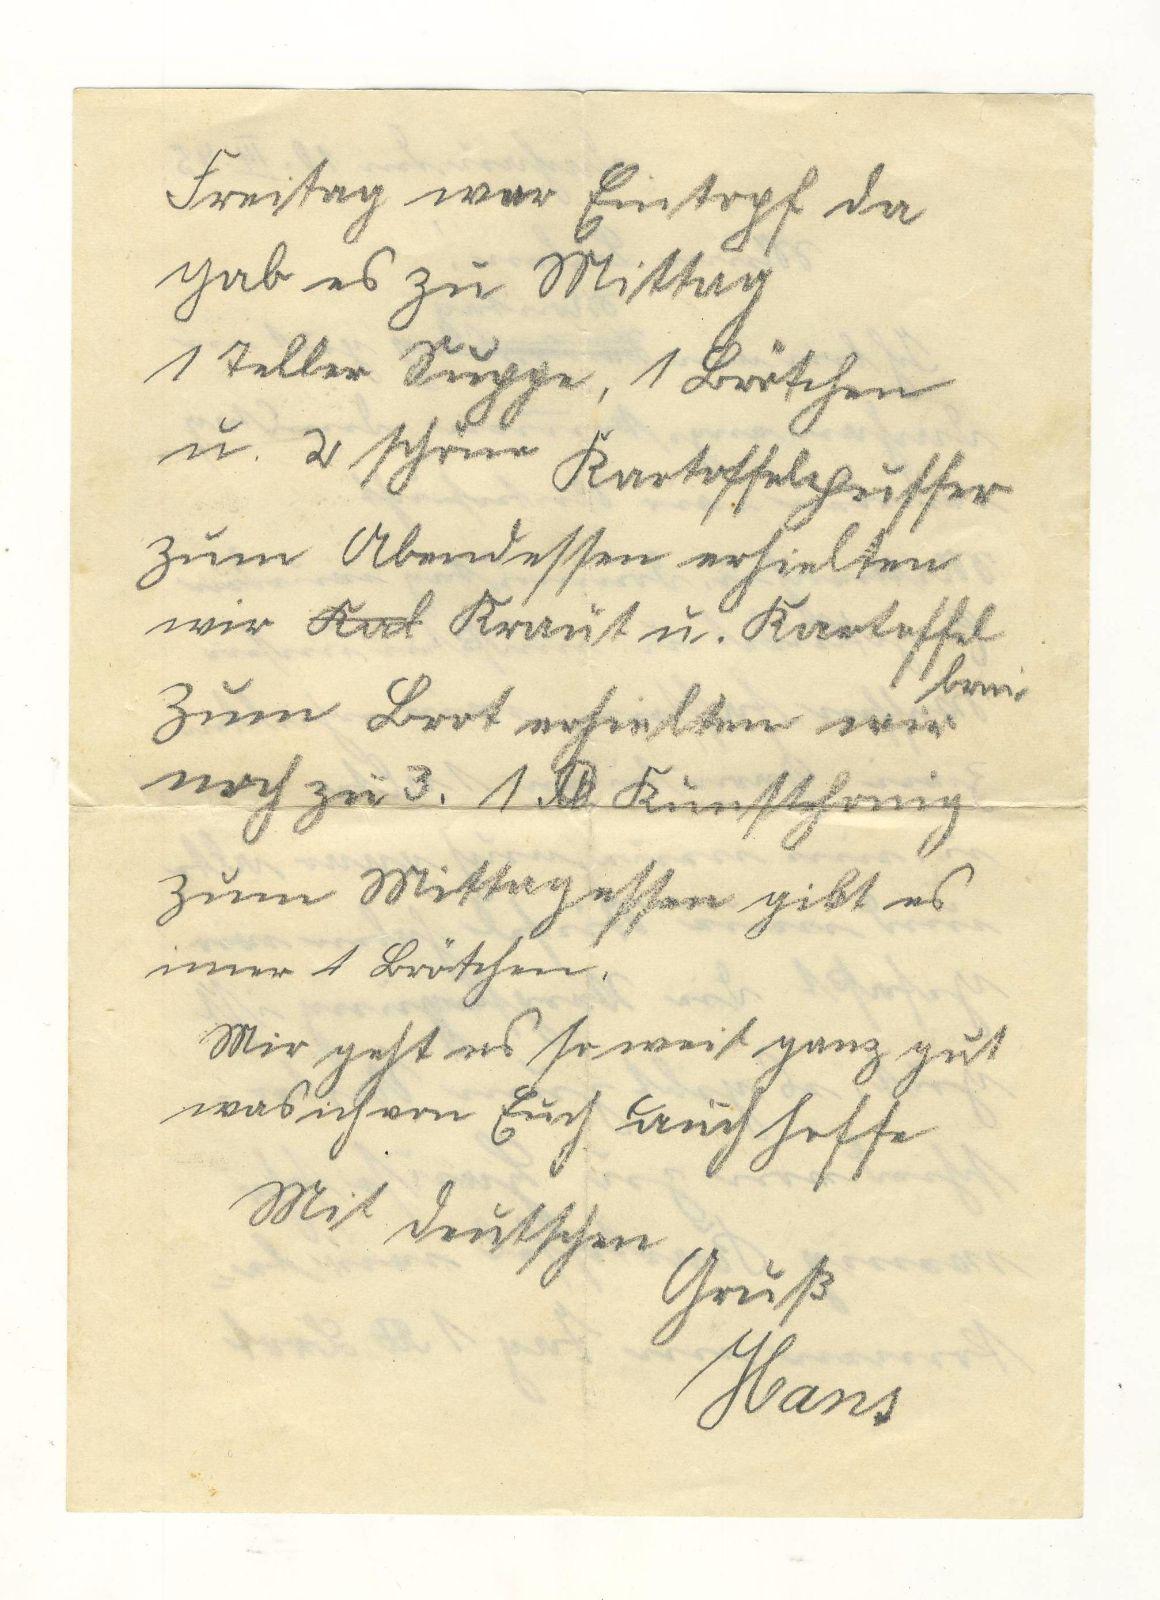 Freitag war Eintopf da
gab es zu Mittag
1 Teller Suppe, 1 Brötchen
u. 2 schöne Kartoffelpuffer
zum Abendessen erhielten
wir Kat Kraut u. Kartoffel
brei.
Zum Brot erhielten wir
noch zu 3. 1 ℔ Kunsthonig
zum Mittagessen gibt es
imer 1 Brötchen.
Mir geht es so weit ganz gut
was ich von Euch auch hoffe
Mit deutschen
Gruß
Hans